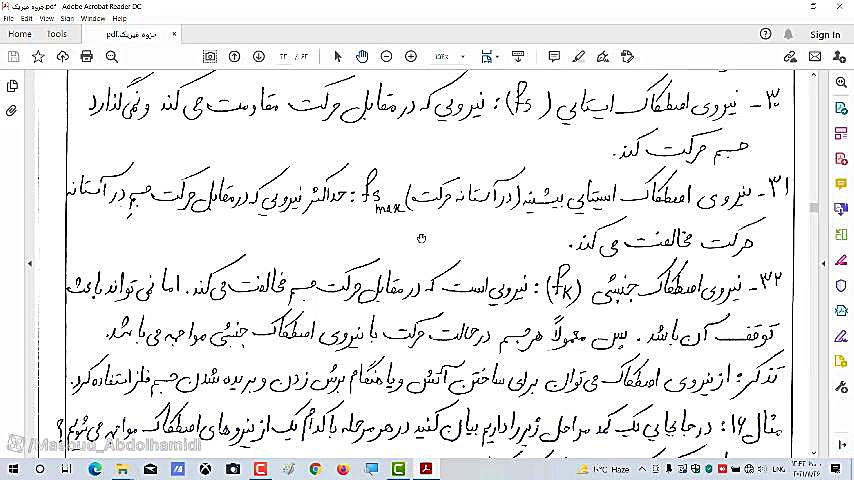 جزوه فیزیک.pdf - Adobe Acrobat Reader DC
File Edit View Sign Window Help
Home Tools جزوه فیزیک.pdf × Sign In
۶۳ / ۲۳
۳۰- نیروی اصطکاک ایستایی (fs): نیرویی که در مقابل حرکت مقاومت می کند و نمی گذارد
جسم حرکت کند.
۳۱- نیروی اصطکاک ایستایی بیشینه (در آستانه حرکت) fs max: حداکثر نیرویی که در مقابل حرکت جسمِ در آستانه
حرکت مخالفت می کند.
۳۲- نیروی اصطکاک جنبشی (fK): نیرویی است که در مقابل حرکت جسم مخالفت می کند. اما نمی تواند باعث
توقف آن باشد. پس معمولاً هر جسم در حالت حرکت با نیروی اصطکاک جنبشی مواجه می باشد.
تذکر: از نیروی اصطکاک می توان برای ساختن آتش و یا هنگام برش زدن و بریده شدن جسم فلز استفاده کرد.
مثال ۱۶: در جابجایی یک کمد مراحل زیر را داریم بیان کنید در هر مرحله با کدام یک از نیروهای اصطکاک مواجه می شویم؟
/Masoud_Abdolhamidi
۱۰°C Haze ENG